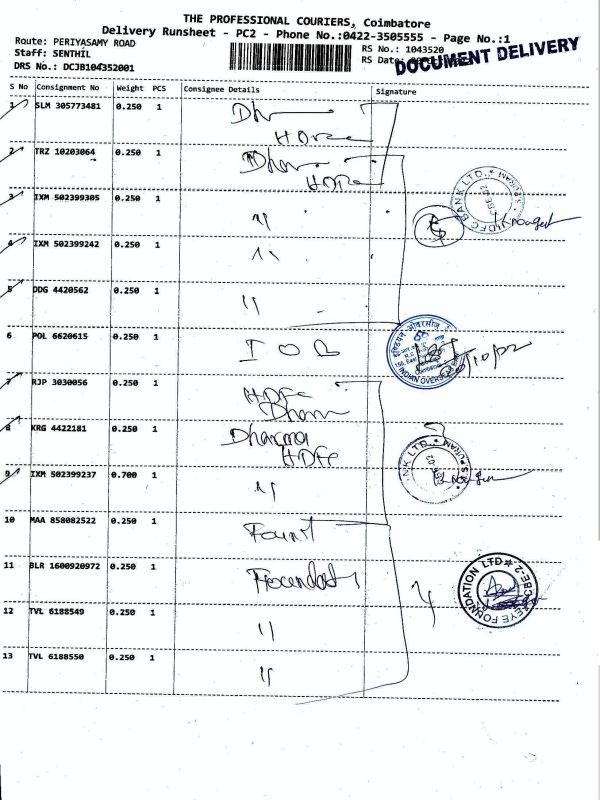 THE PROFESSIONAL COURIERS, Coimbatore
Delivery Runsheet - PC2 - Phone No.:0422-3505555 - Page No.:1
Route: PERIYASAMY ROAD
Staff: SENTHIL
DRS No.: DCJB104352001
RS No.: 1043520
RS Date
DOCUMENT DELIVERY
S No Consignment No Weight PCS Consignee Details Signature
1 SLM 305773481 0.250 1
2 TRZ 10203064 0.250 1
3 IXM 502399305 0.250 1 "
4 IXM 502399242 0.250 1 "
5 DDG 4420562 0.250 1 "
6 POL 6620615 0.250 1 IOB
INDIAN OVERSEAS
7 RJP 3030056 0.250 1 HDFC
8 KRG 4422181 0.250 1 Dharma
HDFC
9 IXM 502399237 0.700 1 "
10 MAA 858082522 0.250 1
11 BLR 1600920972 0.250 1
EYE FOUNDATION LTD CBE-2
12 TVL 6188549 0.250 1 "
13 TVL 6188550 0.250 1 "